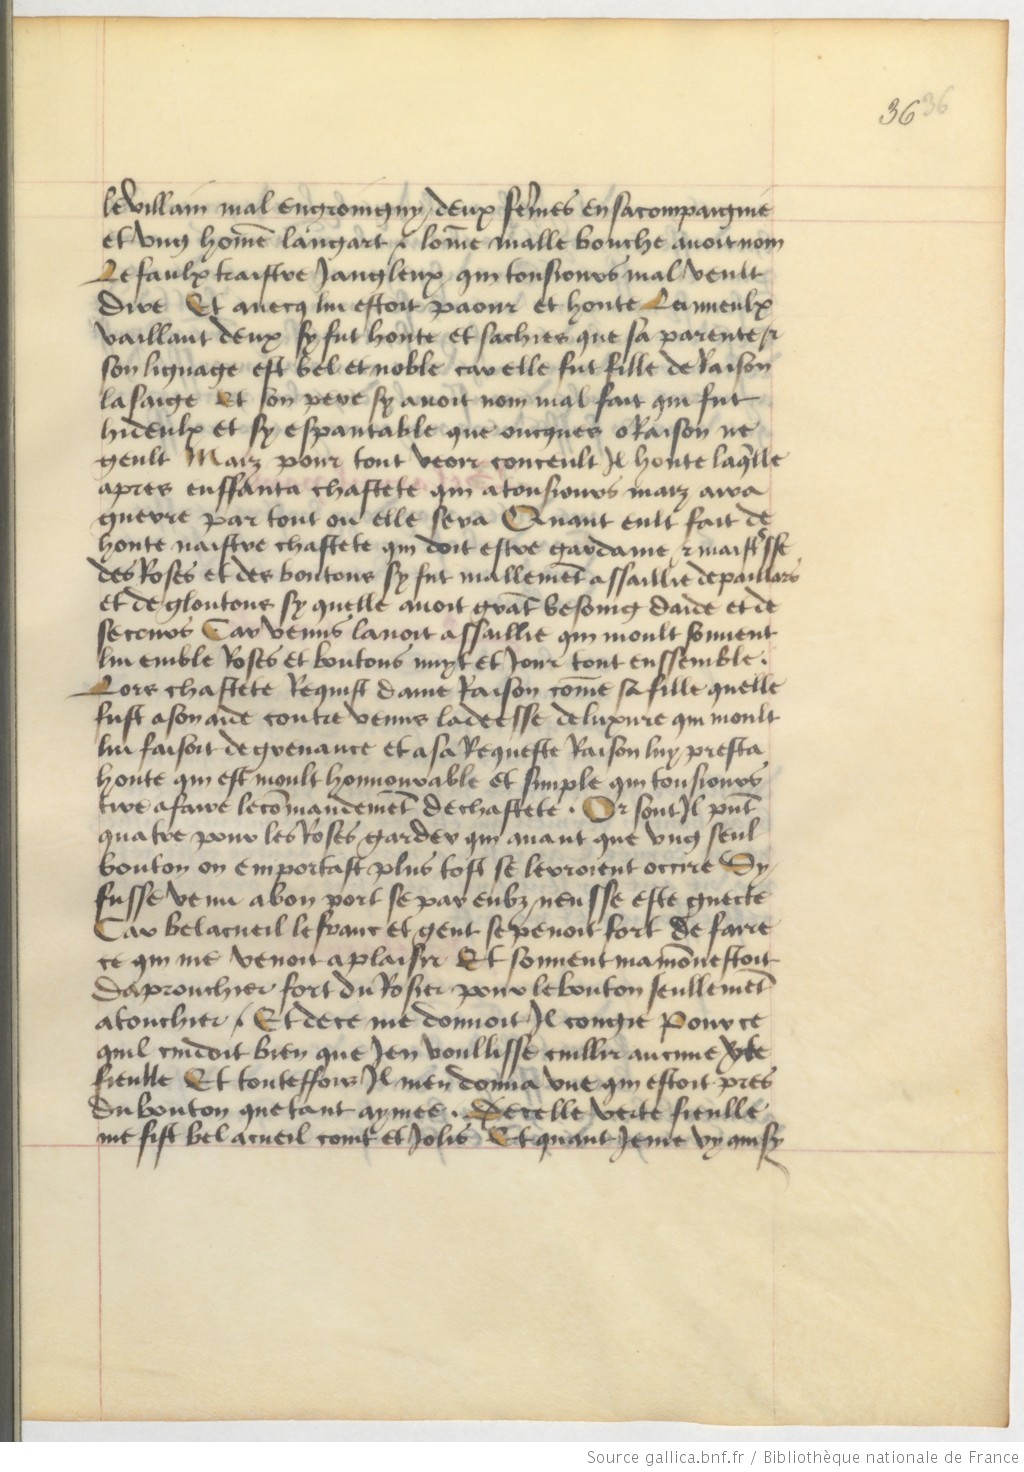 36 36
le villain mal engroingny / deux fem̃es en sa compaignie
et vng hom̃e langart / lom̃e malle bouche auoit nom
Le faulx traistre Jangleux qui tousiours mal veult
dire Et auecq lui estoit paour et honte Le mieulx
vaillant deux sy fut honte et sachies que sa parente et
son lignage est bel et noble car elle fut fille de Raison
la saige Et son pere sy auoit nom mal fait qui fut
hideulx et sy espantable que oncques o Raison ne
geult Maiz pour tout veoir conceult Il honte laq̃lle
apres enffanta chastete qui a tousiours maiz aura
guerre par tout ou elle sera Quant eult fait de
honte naistre chastete qui doit estre gardame et maistresse
des Roses et des boutons sy fut mallemẽt assaillie de paillars
et de gloutons sy quelle auoit grãt besoing daide et de
secours Car venus lauoit assaillie qui moult souuent
lui emble Roses et boutons nuyt et Jour tout enssemble .
Lors chastete Requist dame Raison com̃e sa fille quelle
fust a son aide contre venus la deesse de luxure qui moult
lui faisoit de greuance et a sa Requeste Raison luy presta
honte qui est moult honnourable et simple qui tousiours
tire a faire le cõmandemẽt de chastete . Or sont Il
quatre pour les Roses garder qui auant que vng seul
bouton on emportast plus tost se leroient occire Sy
fusse venu a bon port se par eulz neusse este guecte
Car bel acueil le franc et gent se penoit fort de faire
ce qui me venoit a plaisir Et souuent mamõnestoit
daprouchier fort du Rosier pour le bouton seullemẽt
atouchier / Et de ce me donnoit Il congie Pour ce
quil cuidoit bien que Jen voullisse cuillir aucune
fieulle Et touteffois Il men donna vne qui estoit pres
du bouton que tant aymee . De celle verte fieulle
me fist bel acueil et Jolis Et quant Je me vy ainsy
Source gallica.bnf.fr / Bibliothèque nationale de France